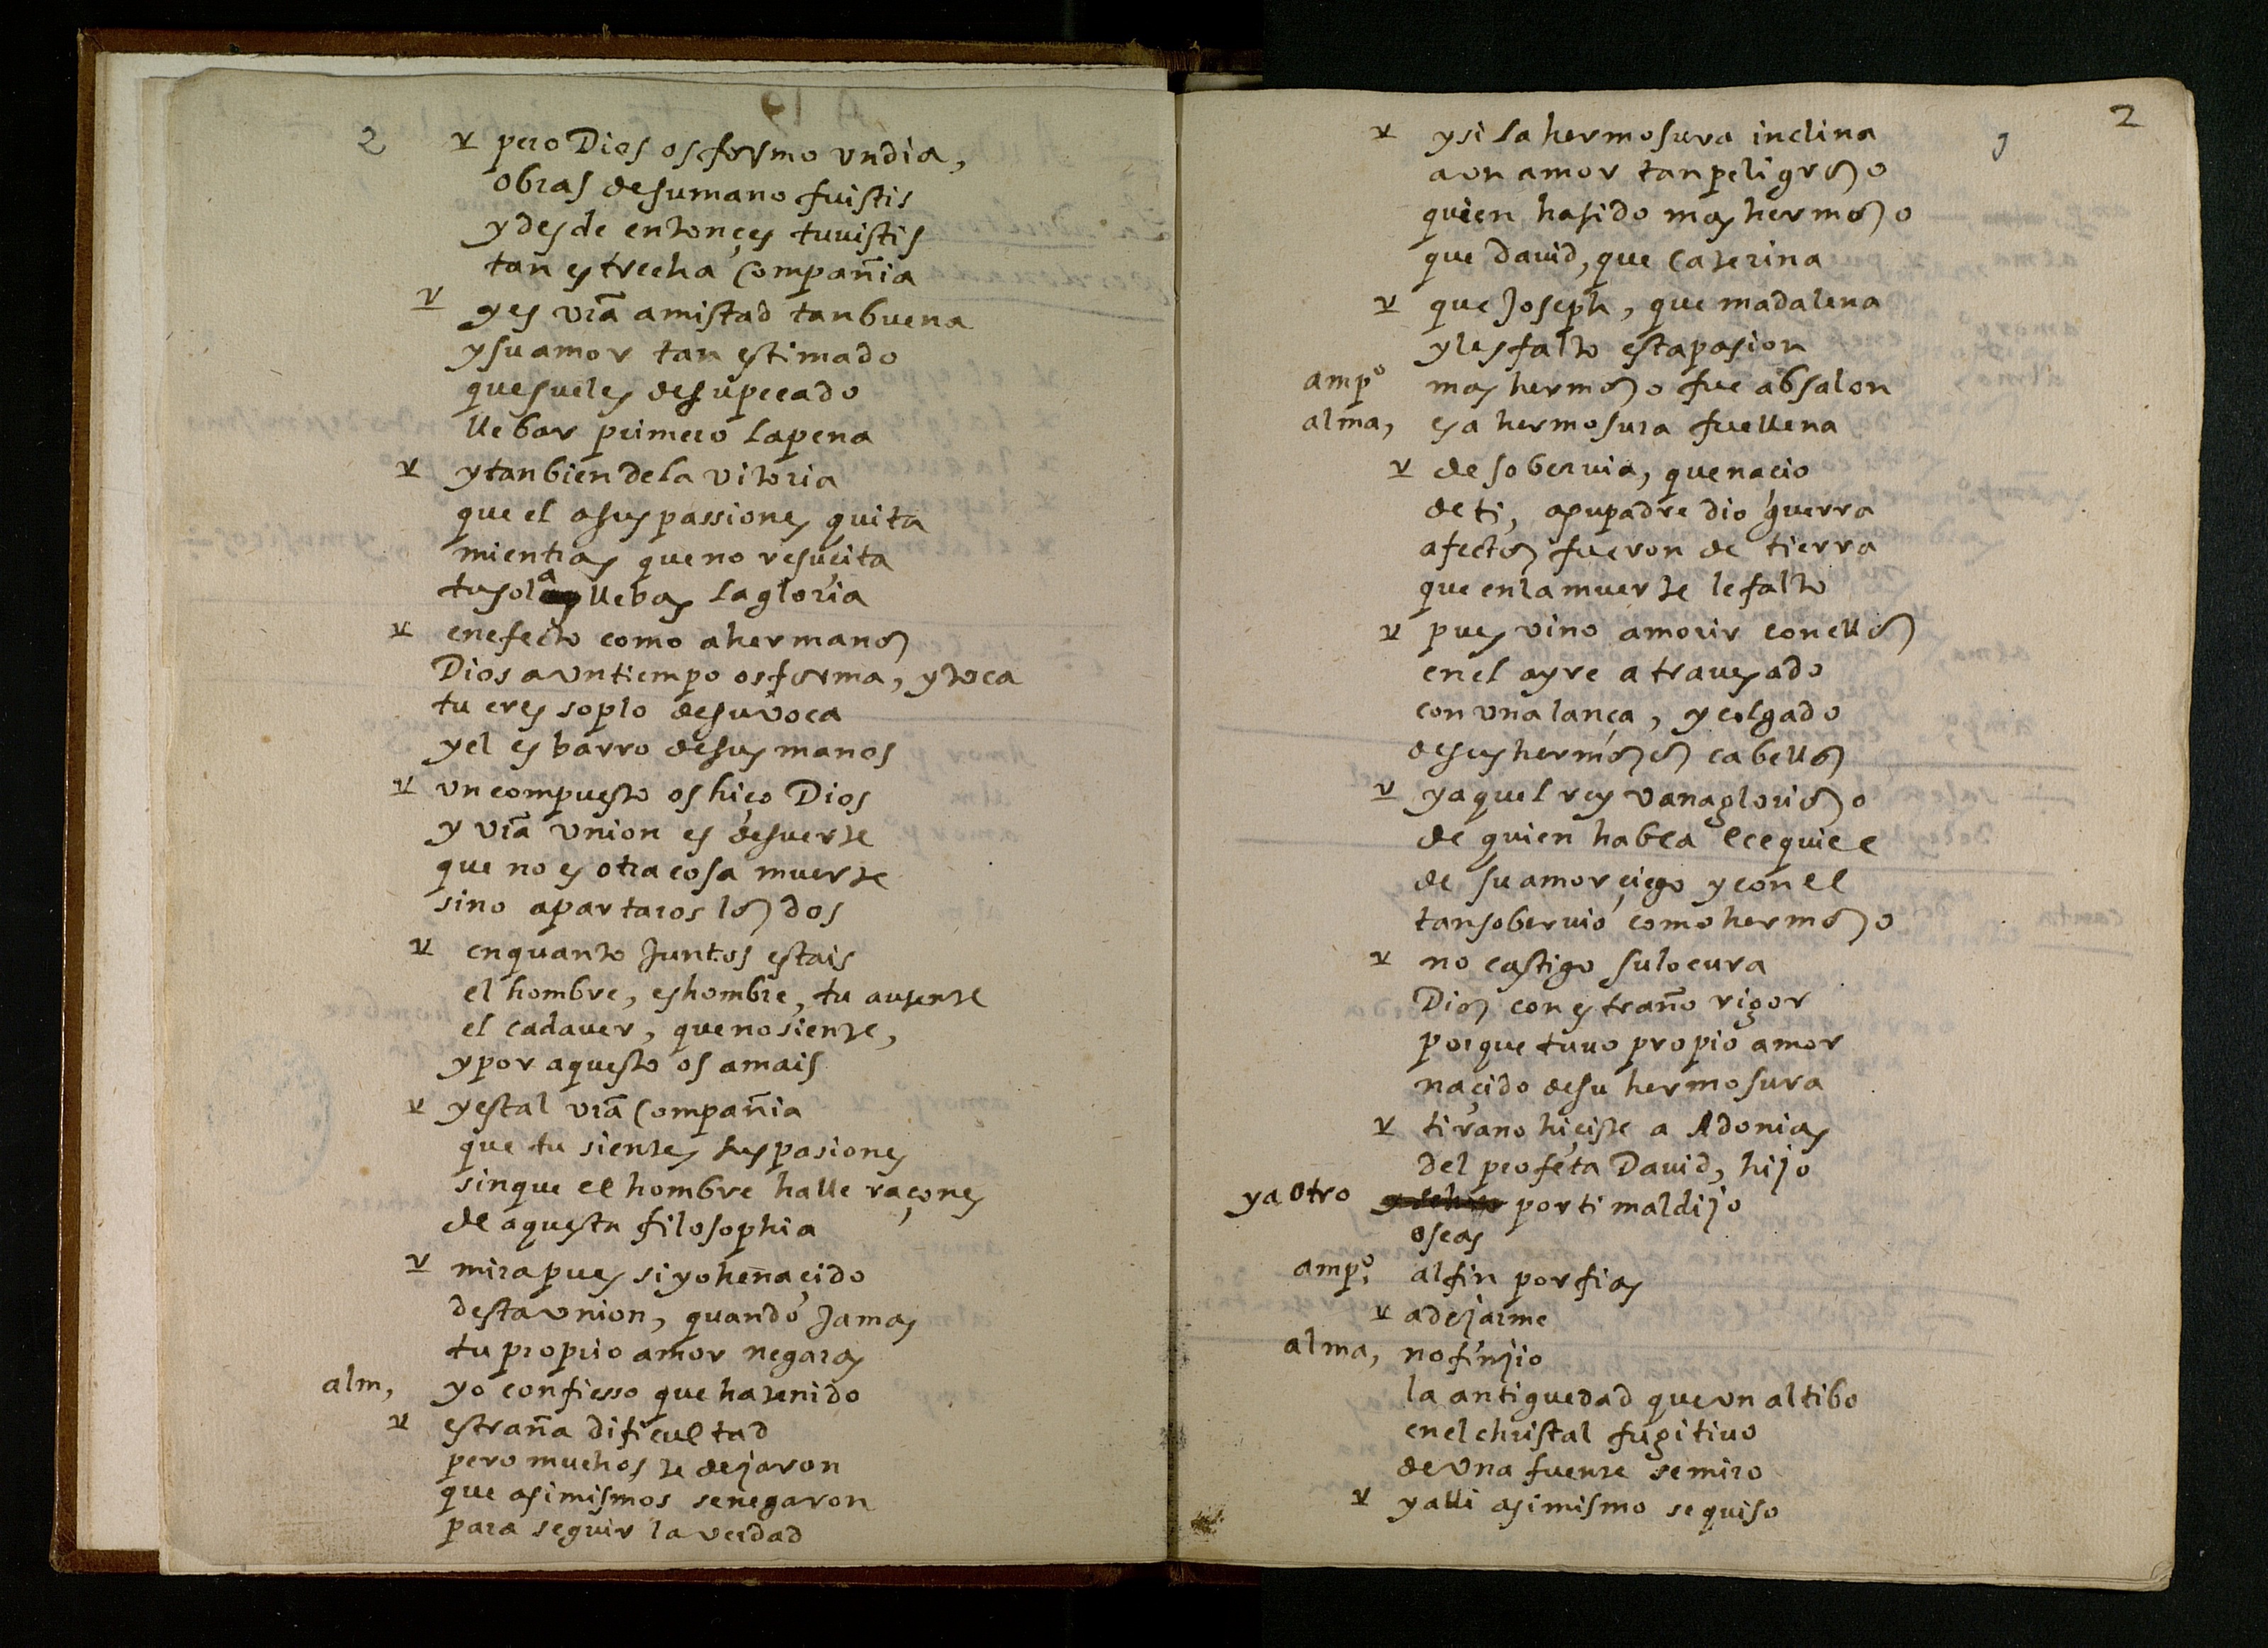 2
v pero Dios os formo vn dia,
obras de su mano fuistis
y desde entonçes tuuistis
tan estrecha compañia
v y es vrã amistad tan buena
y su amor tan estimado
que sueles de su peccado
llebar primero la pena
v y tanbien de la vitoria
que el a sus passiones quita
mientras que no resuçita
tu sola llebas la gloria
v en efecto como a hermanos
Dios a vn tiempo os forma, y toca
tu eres soplo de su voca
y el es barro de sus manos
v vn compuesto os hiço Dios
y vrã vnion es de suerte
que no es otra cosa muerte
sino apartaros los dos
v en quanto Juntos estais
el hombre, es hombre, tu ausente
el cadauer, que no siente,
y por aquesto os amais
v y es tal vrã Compañia
que tu sientes sus pasiones
sin que el hombre halle raçones
de aquesta filosophia
v mira pues si yo he naçido
desta vnion, quando Jamas
tu proprio amor negaras
alm, yo confiesso que ha tenido
v estraña dificultad
pero muchos te dejaron
que asi mismos se negaron
para seguir la verdad
2
3
v y si la hermosura inclina
a vn amor tan peligroso
quien ha sido mas hermoso
que dauid, que Caterina
v que Joseph, que madalena
y les falto esta pasion
ampº mas hermoso fue absalon
alma, esa hermosura fue llena
v de soberuia, que nacio
de ti, a su padre dio guerra
afectos fueron de tierra
que en la muerte le falto
v pues vino a morir con ellos
en el ayre atrauesado
con vna lança, y colgado
de sus hermosos cabellos
v y aquel rey vanaglorioso
de quien habla ecequiel
de su amor çiego y con el
tan soberuio como hermoso
v no castigo su locura
Dios con estraño rigor
porque tuuo propio amor
naçido de su hermosura
v tirano hiçiste a Adonias
del profeta Dauid, hijo
ya otro por ti maldijo
oseas
ampº, al fin porfias
v a dejarme
alma, no finjio
la antiguedad que vn altibo
en el christal fugitiuo
de vna fuente se miro
v y alli asi mismo se quiso